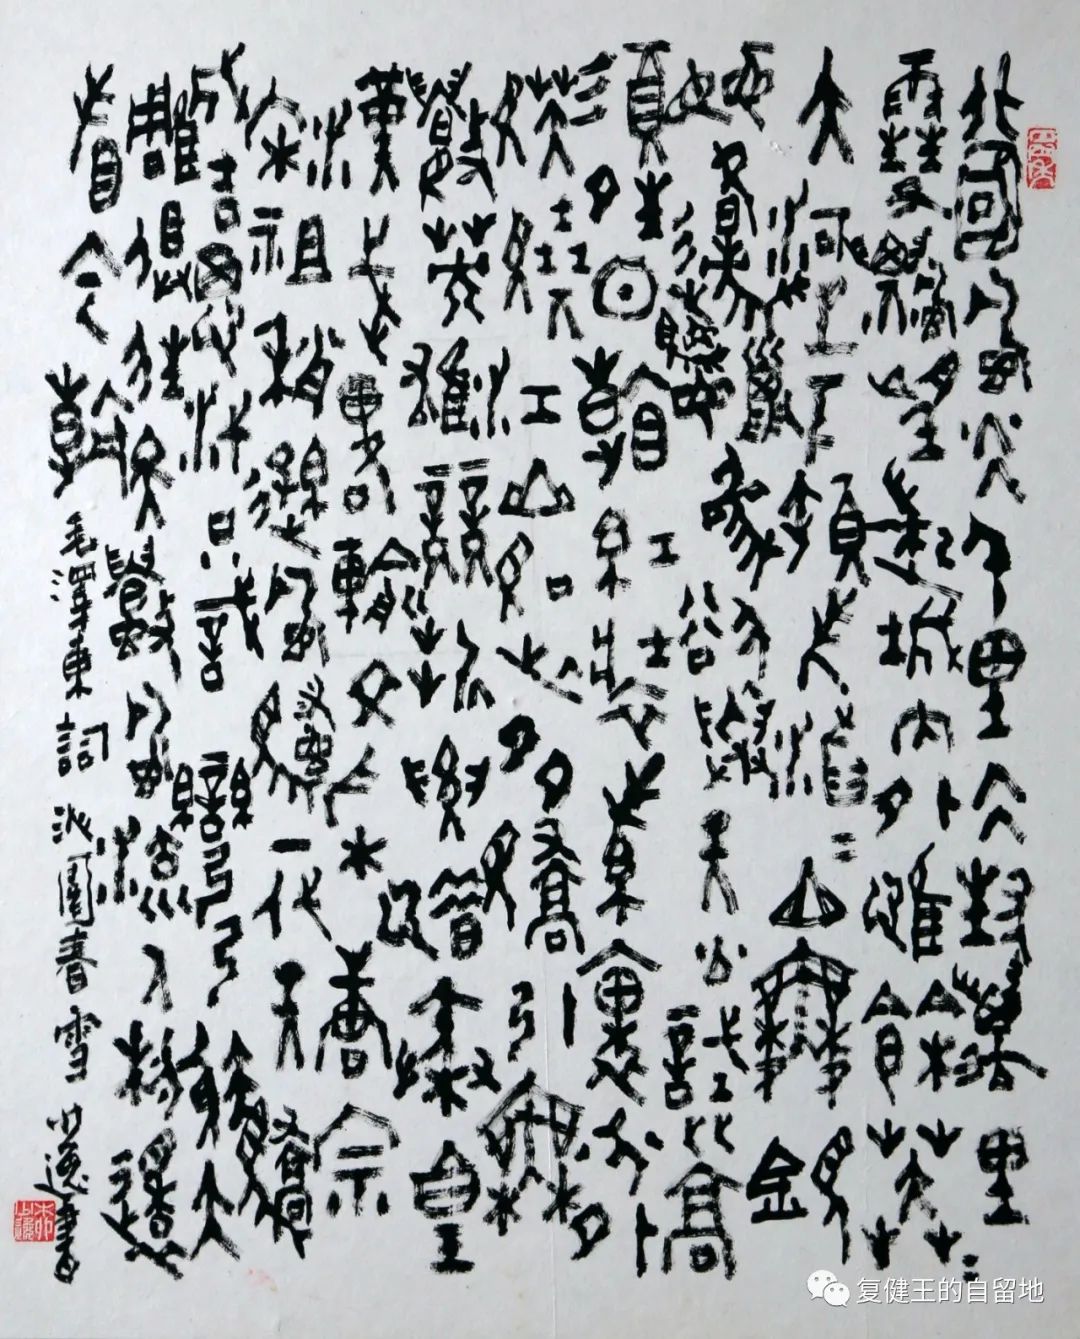 北國風光千里冰封萬里
雪飄望長城內外惟餘莽〻
大河上下頓失滔〻山舞銀
蛇原馳蠟象欲與天公試比高
須晴日看紅裝素裹分外
妖嬈江山如此多嬌引無
數英雄競折腰惜秦皇
漢武略輸文采唐宗
宋祖稍遜風騷一代天驕
成吉思汗只識彎弓射大
雕俱往矣數風流人物還
看今朝 毛澤東詞沁園春雪 逸書
复健王的自留地